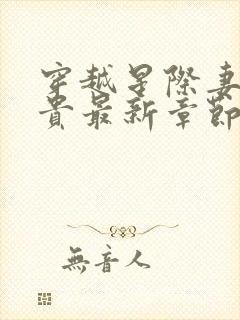 穿越星際妻
貴最新章節
無音人